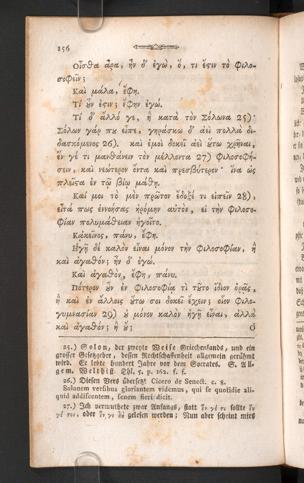 156
Οἶσθα ἆρα, ἦν δ' ἐγὼ, ὅ, τι ἔστιν τὸ φιλο-
σοφεῖν;
Καὶ μάλα, ἔφη.
Τί οὖν ἔστιν; ἔφην ἐγώ.
Τί δ' ἄλλο γε, ἢ κατὰ τὸν Σόλωνα 25)·
Σόλων γάρ που εἶπε, γηράσκω δ' αἰεὶ πολλὰ δι-
δασκόμενος 26). καὶ ἐμοὶ δοκεῖ ἀεὶ οὕτω χρῆναι,
ἕν γέ τι μανθάνειν τὸν μέλλοντα 27) φιλοσοφή-
σειν, καὶ νεώτερον ὄντα καὶ πρεσβύτερον· ἵνα ὡς
πλεῖστα ἐν τῷ βίῳ μάθῃ.
Καί μοι τὸ μὲν πρῶτον ἔδοξέ τι εἰπεῖν 28),
ἔπειτά πως ἐννοήσας ἠρόμην αὐτὸν, εἰ τὴν φιλοσο-
φίαν πολυμάθειαν ἡγοῖτο.
Κἀκεῖνος, πάνυ, ἔφη.
Ἡγῇ δὲ καλὸν εἶναι μόνον τὴν φιλοσοφίαν, ἢ
καὶ ἀγαθόν; ἦν δ' ἐγώ.
Καὶ ἀγαθὸν, ἔφη, πάνυ.
Πότερον οὖν ἐν φιλοσοφίᾳ τι τοῦτο ἴδιον ὁρᾷς,
ἢ καὶ ἐν ἄλλοις οὕτω σοι δοκεῖ ἔχειν; οἷον φιλο-
γυμνασίαν 29) οὐ μόνον καλὸν ἡγῇ εἶναι, ἀλλὰ
καὶ ἀγαθόν; ἢ οὔ;
Ὁ
25.) Solon, der zweyte Weise Griechenlands, und ein
großer Gesetzgeber, dessen Rechtschaffenheit allgemein gerühmt
wird. Er lebte hundert Jahre vor dem Socrates. S. All-
gem. Welthist. Thl. 5. p. 162. f. f.
26.) Diesen Vers übersetzt Cicero de Senect. c. 8.
Solonem versibus gloriantem videmus, qui se quotidie ali-
quid addiscentem, senem fieri dicit.
27.) Ich vermuthete zwar Anfangs, statt
oder gelesen werden; Nun aber scheint mirs